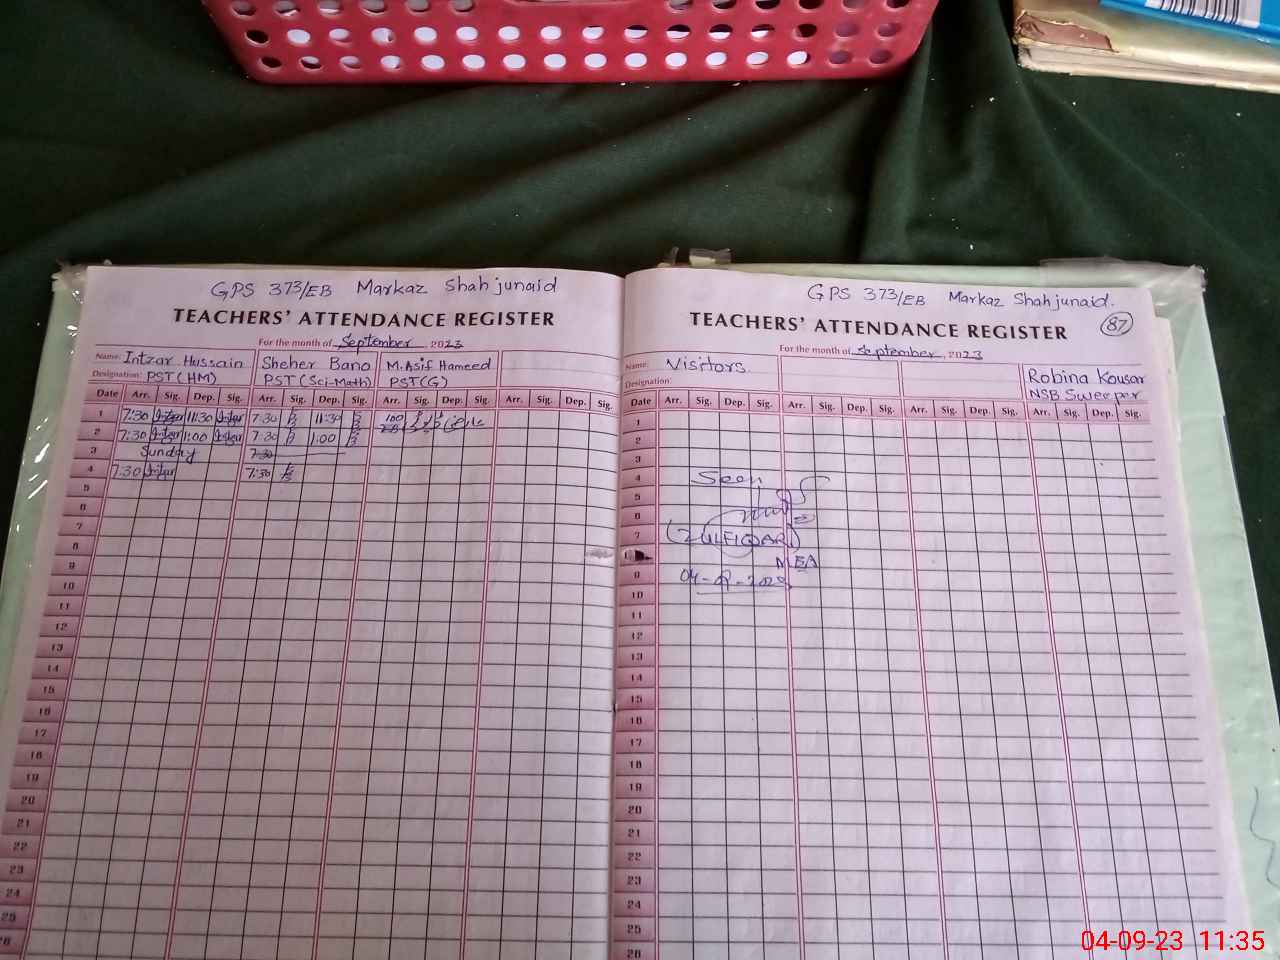 GPS 373/EB Markaz Shahjunaid
TEACHERS' ATTENDANCE REGISTER
For the month of September, 2023
Name: Intzar Hussain Sheher Bano M.Asif Hameed
Designation: PST(HM) PST(Sci-Math) PST(G)
Date Arr. Sig. Dep. Sig. Arr. Sig. Dep. Sig. Arr. Sig. Dep. Sig. Arr. Sig. Dep. Sig.
1 7:30 Intzar 11:30 Intzar 7:30 11:30
2 7:30 Intzar 1:00 Intzar 7:30 1:00
3 Sunday 7:30
4 7:30 Intzar 7:30
5
6
7
8
9
10
11
12
13
14
15
16
17
18
19
20
21
22
23
24
25
26
GPS 373/EB Markaz Shahjunaid.
TEACHERS' ATTENDANCE REGISTER 87
For the month of September, 2023
Name: Visitors Robina Kousar
Designation: NSB Sweeper
Date Arr. Sig. Dep. Sig. Arr. Sig. Dep. Sig. Arr. Sig. Dep. Sig. Arr. Sig. Dep. Sig.
1
2
3
4 Seen
5
6
7 (ZULFIQAR)
MEA
9 04-09-2023
10
11
12
13
14
15
16
17
18
19
20
21
22
23
24
25
26
04-09-23 11:35